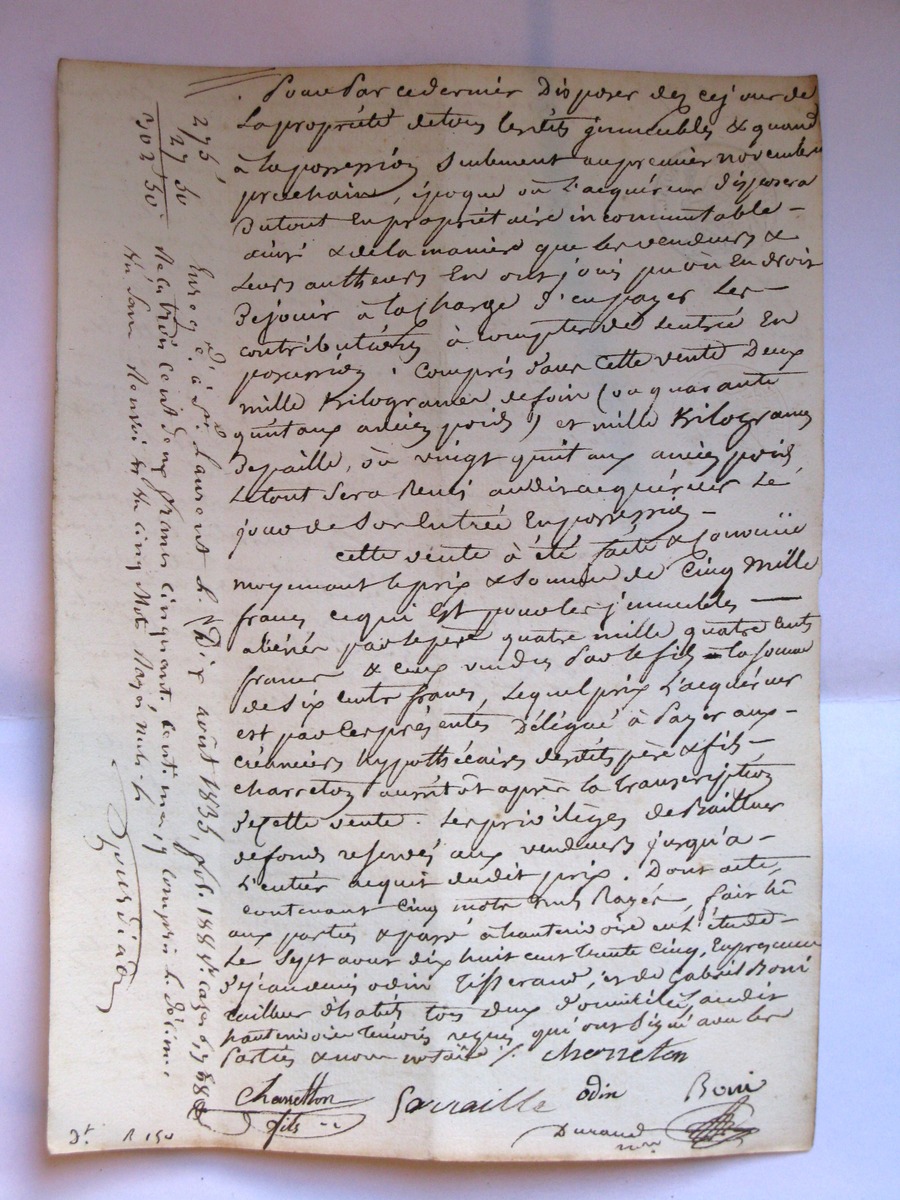 Pour Par ce dernier Disposer dez ce jour de
La propriété de tous lesdits jmmeubles & quand
à la possession seulement au premier novembre
prochain, époque où L'acquéreur disposera
Du tout En propriétaire incommutable -
ainsi & de la manière que les vendeurs &
Leurs autheurs En ont joui pu ou En droit
De jouir à la charge d'en payer Les -
contributions à compter de L'entrée En
possession. Compris dans Cette vente Deux
mille Kilogrames de foin (ou quarante
quintaux ancien poids) et mille Kilogrames
De paille, où vingt quintaux ancien poids
Le tout Sera Remis audit acquéreur Le
jour de Son Entrée En possession -
Cette vente à été faite & Convenüe
moyennant le prix & Somme de Cinq Mille
francs ce qui Est pour les jmmeubles —
aliénés par le père quatre mille quatre cents
francs & ceux vendus Par le fils - la somme
de Six cents francs, Lequel prix L'acquéreur
est par Les présentes Délégué à Payer aux -
créanciers hypothécaires desdits père & fils -
charreton aussitôt après la transcription
De Cette vente. Les privilèges de Bailleur
de fonds reservés aux vendeurs jusqu'a -
L'entier acquit dudit prix. Dont acte,
contenant Cinq mots nuls Rayés, fait lû
aux parties & passé à hauterivoire en L'étude -
Le Sept aout dix huit cent trente Cinq, En presence
De jean denis odin tisserand, et de Gabriel Boni
tailleur d'habits tous deux domiciliés audit
hauterivoire temoins requis qui ont Signé avec les
Parties & nous notaire /. Charreton
Charretton fils
Sarraille
odin
Boni
Durand nore
275
27 50
302 50
Enreg.é à St Laurent le Dix août 1835, fol. 188
Reçu trois cent deux francs cinquante cent.mes compris le décime
cinq Mots Rayés nuls
Dt. R 150